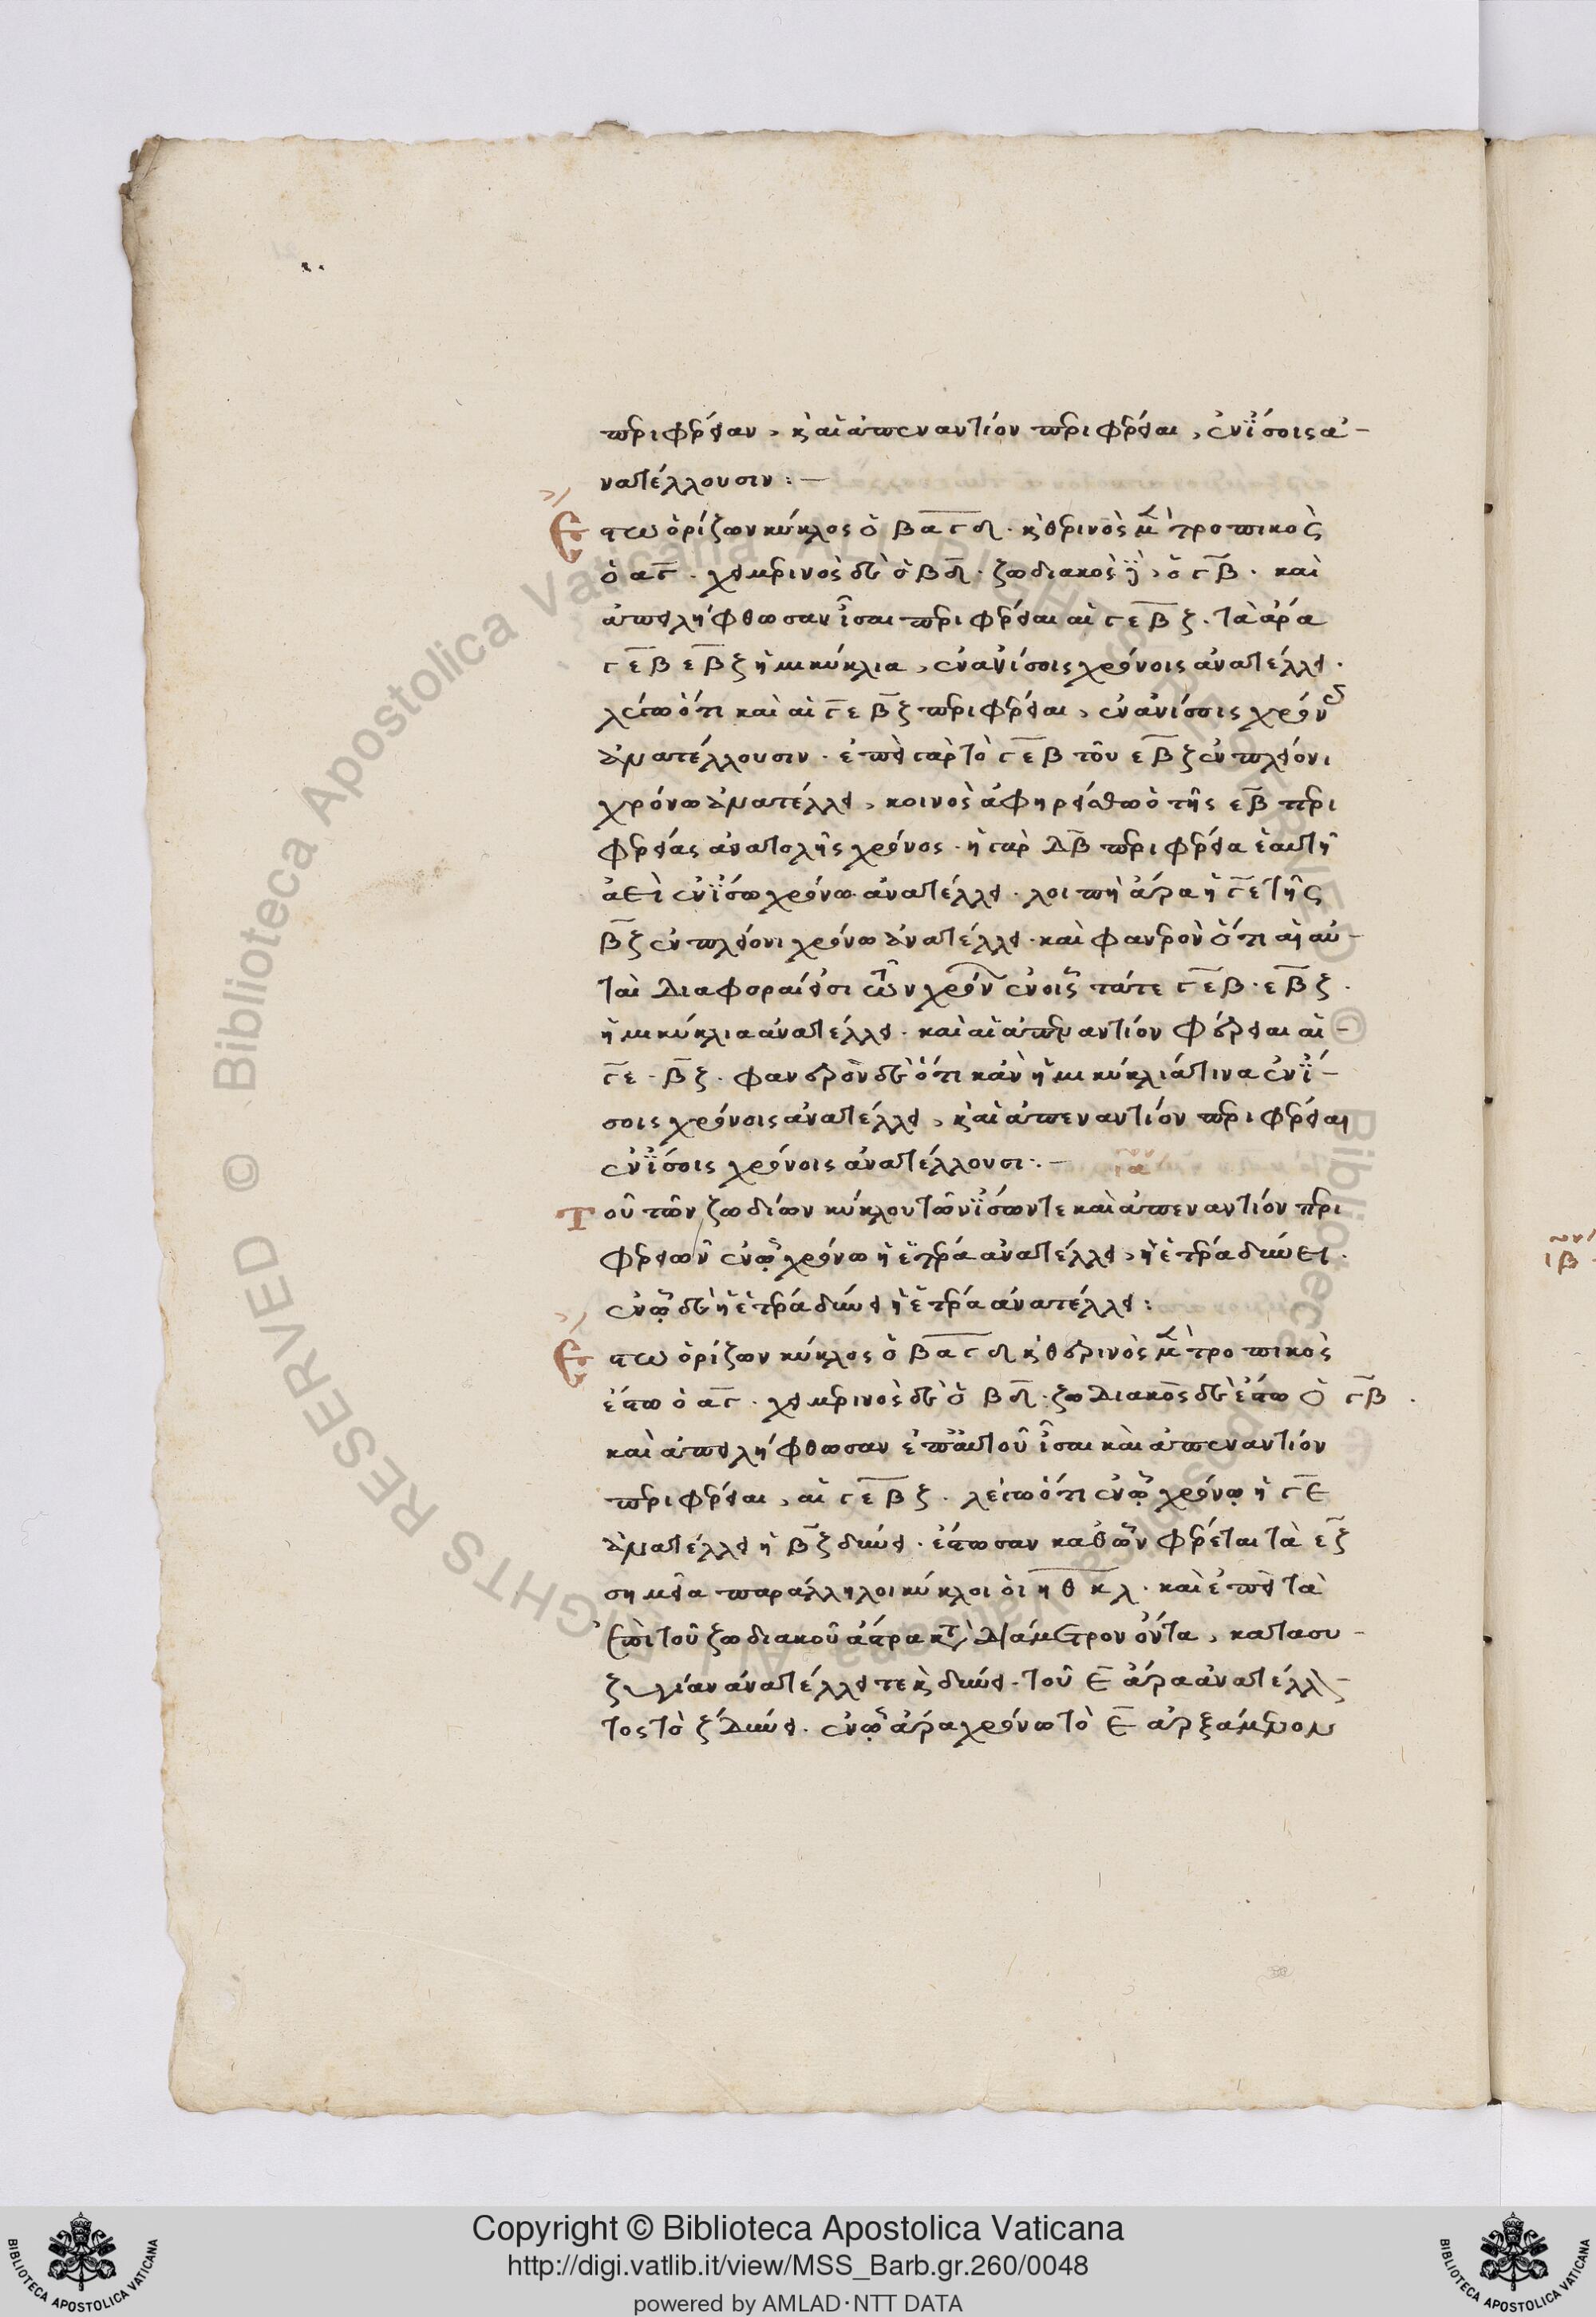 περιφέρειαν, καὶ ἀπεναντίον περιφέρειαι, ἐν ἴσοις ἀ-
νατέλλουσιν:—
Ἔστω ὁρίζων κύκλος ὁ β̅α̅γ̅δ̅. κ θερινὸς μ τροπικὸς
ὁ α̅γ̅. χειμερινὸς δὲ ὁ β̅δ̅. ζωδιακὸς ὁ γ̅β̅. καὶ
ἀπειλήφθωσαν ἴσαι περιφέρειαι αἱ γ̅ε̅ β̅ζ̅. τὰ ἄρα
γ̅ε̅β̅ ε̅β̅ζ̅ ἡμικύκλια, ἐν ἀνίσοις χρόνοις ἀνατέλλει.
λέγω ὅτι καὶ αἱ γ̅ε̅ β̅ζ̅ περιφέρειαι, ἐν ἀνίσοις χρόν
ἀνατέλλουσιν. ἐπεὶ γὰρ τὸ γ̅ε̅β̅ τοῦ ε̅β̅ζ̅ ἐν πλείονι
χρόνω ἀνατέλλει, κοινὸς ἀφηρείσθω ὁ τῆς ε̅β̅ περι
φερείας ἀνατολῆς χρόνος. ἡ γὰρ δ̅β̅ περιφέρεια ἑαυτῆ
ἀεὶ ἐν ἴσω χρόνω ἀνατέλλει. λοιπὴ ἄρα ἡ γ̅ε̅ τῆς
β̅ζ̅ ἐν πλείονι χρόνω ἀνατέλλει. καὶ φανερὸν ὅτι αἱ αὐ-
ταὶ διαφοραί εἰσι τῶν χρόν ἐν οἷς τάτε γ̅ε̅β̅. ε̅β̅ζ̅.
ἡμικύκλια ἀνατέλλει. καὶ αἱ ἀπεναντίον φέρειαι αἱ-
γ̅ε̅. β̅ζ̅. φανερὸν δὲ ὅτι κἀν ἡμικύκλιά τινα ἐν ἴ-
σοις χρόνοις ἀνατέλλει, καὶ ἀπεναντίον περιφέρειαι
ἐν ἴσοις χρόνοις ἀνατέλλουσι:.—
Τοῦ τῶν ζωδίων κύκλου τῶν ἴσων τε καὶ ἀπεναντίον περι
φερειῶν ἐν ᾧ χρόνω ἡ ἑτέρα ἀνατέλλει, ἡ ἑτέρα δύνει.
ἐν ᾧ δὲ ἡ ἑτέρα δύνει ἡ ἑτέρα ἀνατέλλει:
Ἔστω ὁρίζων κύκλος ὁ β̅α̅γ̅δ̅ κ θερινὸς μ τροπικὸς
ἔστω ὁ α̅γ̅. χειμερινὸς δὲ ὁ β̅δ̅. ζωδιακὸς δὲ ἔστω ὁ γ̅β̅.
καὶ ἀπειλήφθωσαν ἐπ' αὐτοῦ ἴσαι καὶ ἀπεναντίον
περιφέρειαι, αἱ γ̅ε̅ β̅ζ̅. λέγω ὅτι ἐν ᾧ χρόνῳ ἡ γ̅ε̅
ἀνατέλλει ἡ β̅ζ̅ δύνει. ἔστωσαν καθ' ὧν φέρεται τὰ ε̅ζ̅
σημεῖα παράλληλοι κύκλοι οἱ η̅θ̅ κ̅λ̅. καὶ ἐπεὶ τὰ
ἐπὶ τοῦ ζωδιακοῦ ἄστρα κτ διάμετρον ὄντα, κατὰ συ-
ζυγίαν ἀνατέλλει τε κ δύνει. τοῦ ε̅ ἄρα ἀνατέλλ-
τος τὸ ζ̅ δύνει. ἐν ᾧ ἄρα χρόνω τὸ ε̅ ἀρξάμενον
ιβ
Copyright © Biblioteca Apostolica Vaticana
http://digi.vatlib.it/view/MSS_Barb.gr.260/0048
powered by AMLAD·NTT DATA